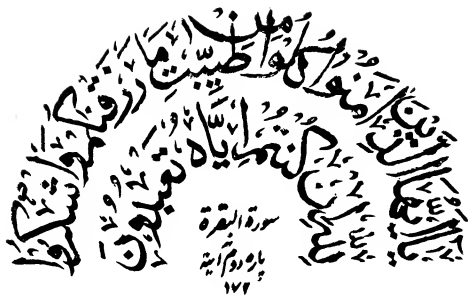 يَا أَيُّهَا الَّذِينَ آمَنُوا كُلُوا مِن طَيِّبَاتِ مَا رَزَقْنَاكُمْ وَاشْكُرُوا
لِلَّهِ إِن كُنتُمْ إِيَّاهُ تَعْبُدُونَ
سورة البقرة
پاره دوم آیة
۱۷۲